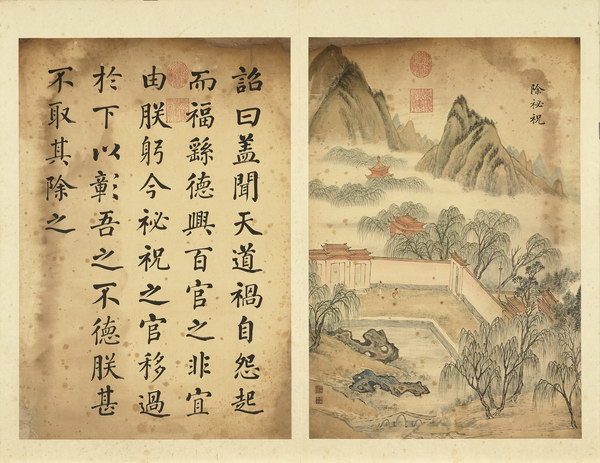 除祕祝
詔曰盖聞天道禍自怨起
而福繇德興百官之非宜
由朕躬今祕祝之官移過
於下以彰吾之不德朕甚
不取其除之